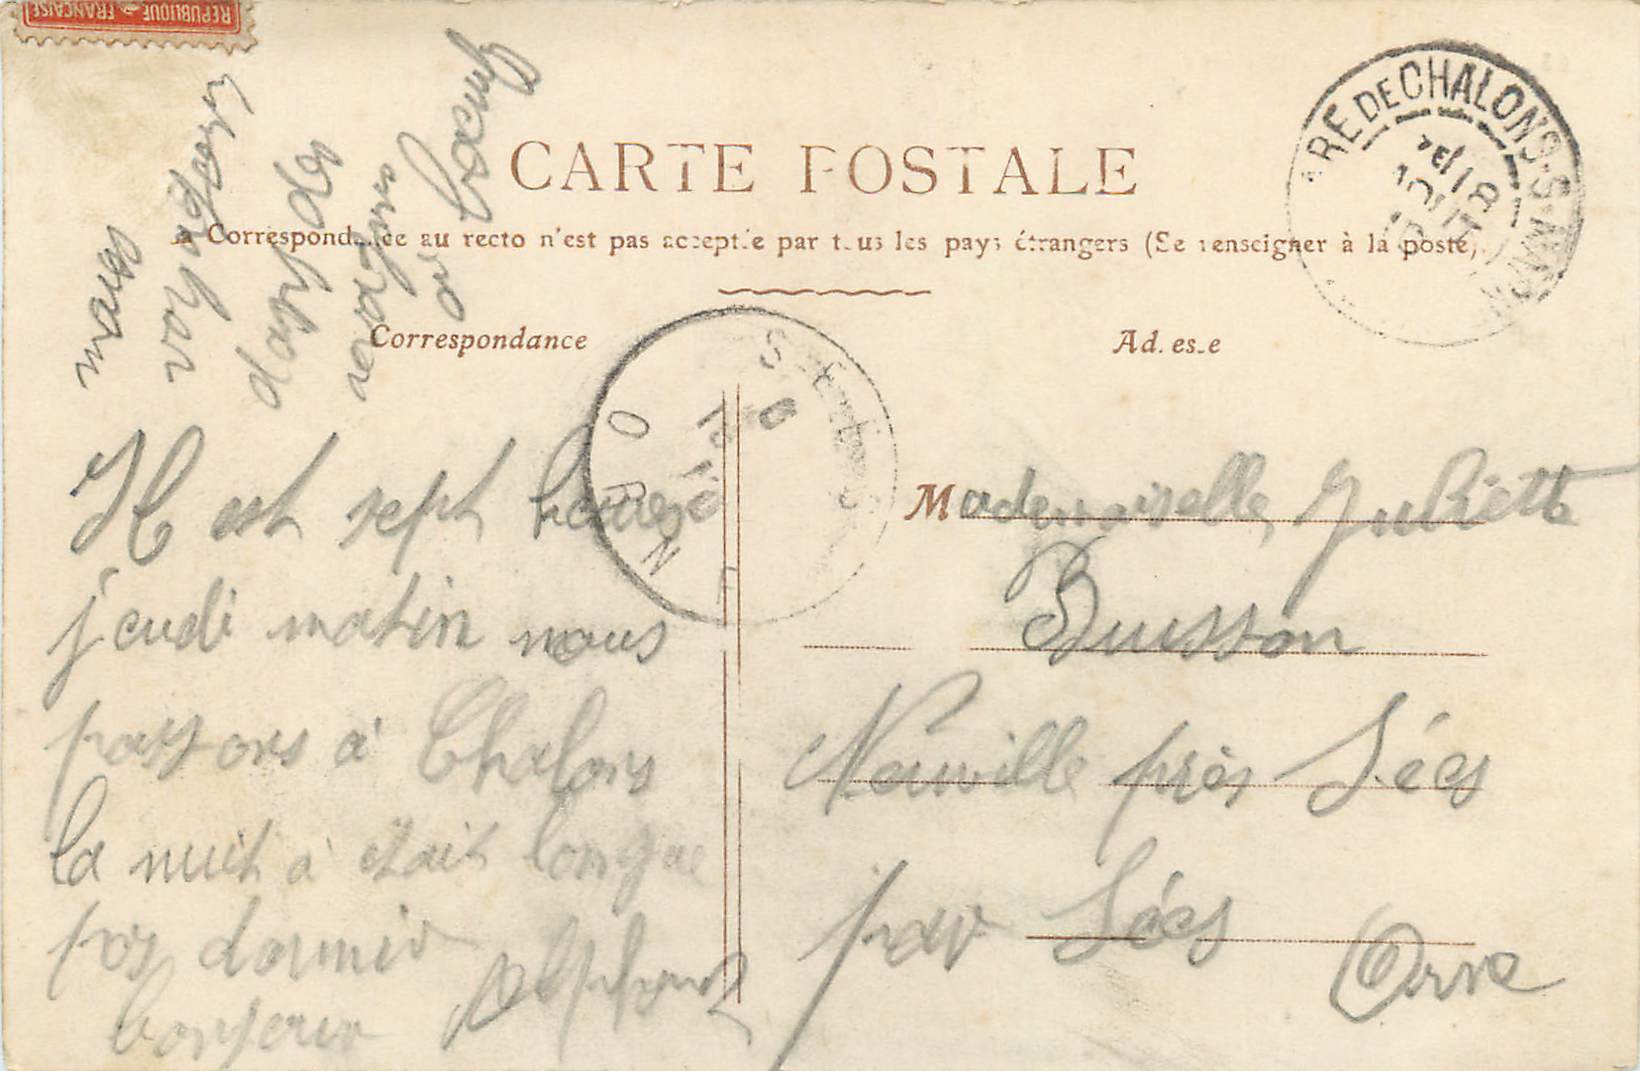 REPUBLIQUE FRANÇAISE
CARTE POSTALE
La Correspondance au recto n'est pas acceptée par tous les pays étrangers (Se renseigner à la poste).
Correspondance
Adresse
nous
voyageons
dans des
wagons
Il est sept heures
jeudi matin nous
passons à Chalons
la nuit a était longue
pas dormir
bonjour Alphonse
Mademoiselle Juliette
Buisson
Neuville près Sées
par Sées
Orne
GARE DE CHALONS-S-MARNE
SEES
ORNE